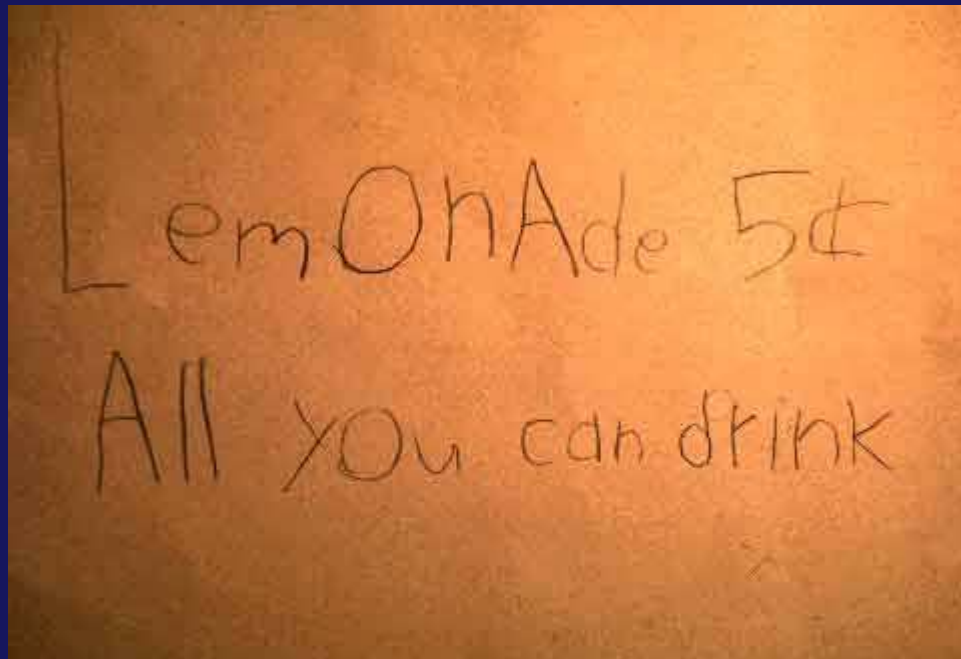 LemOnAde 5¢
All yOu can drink